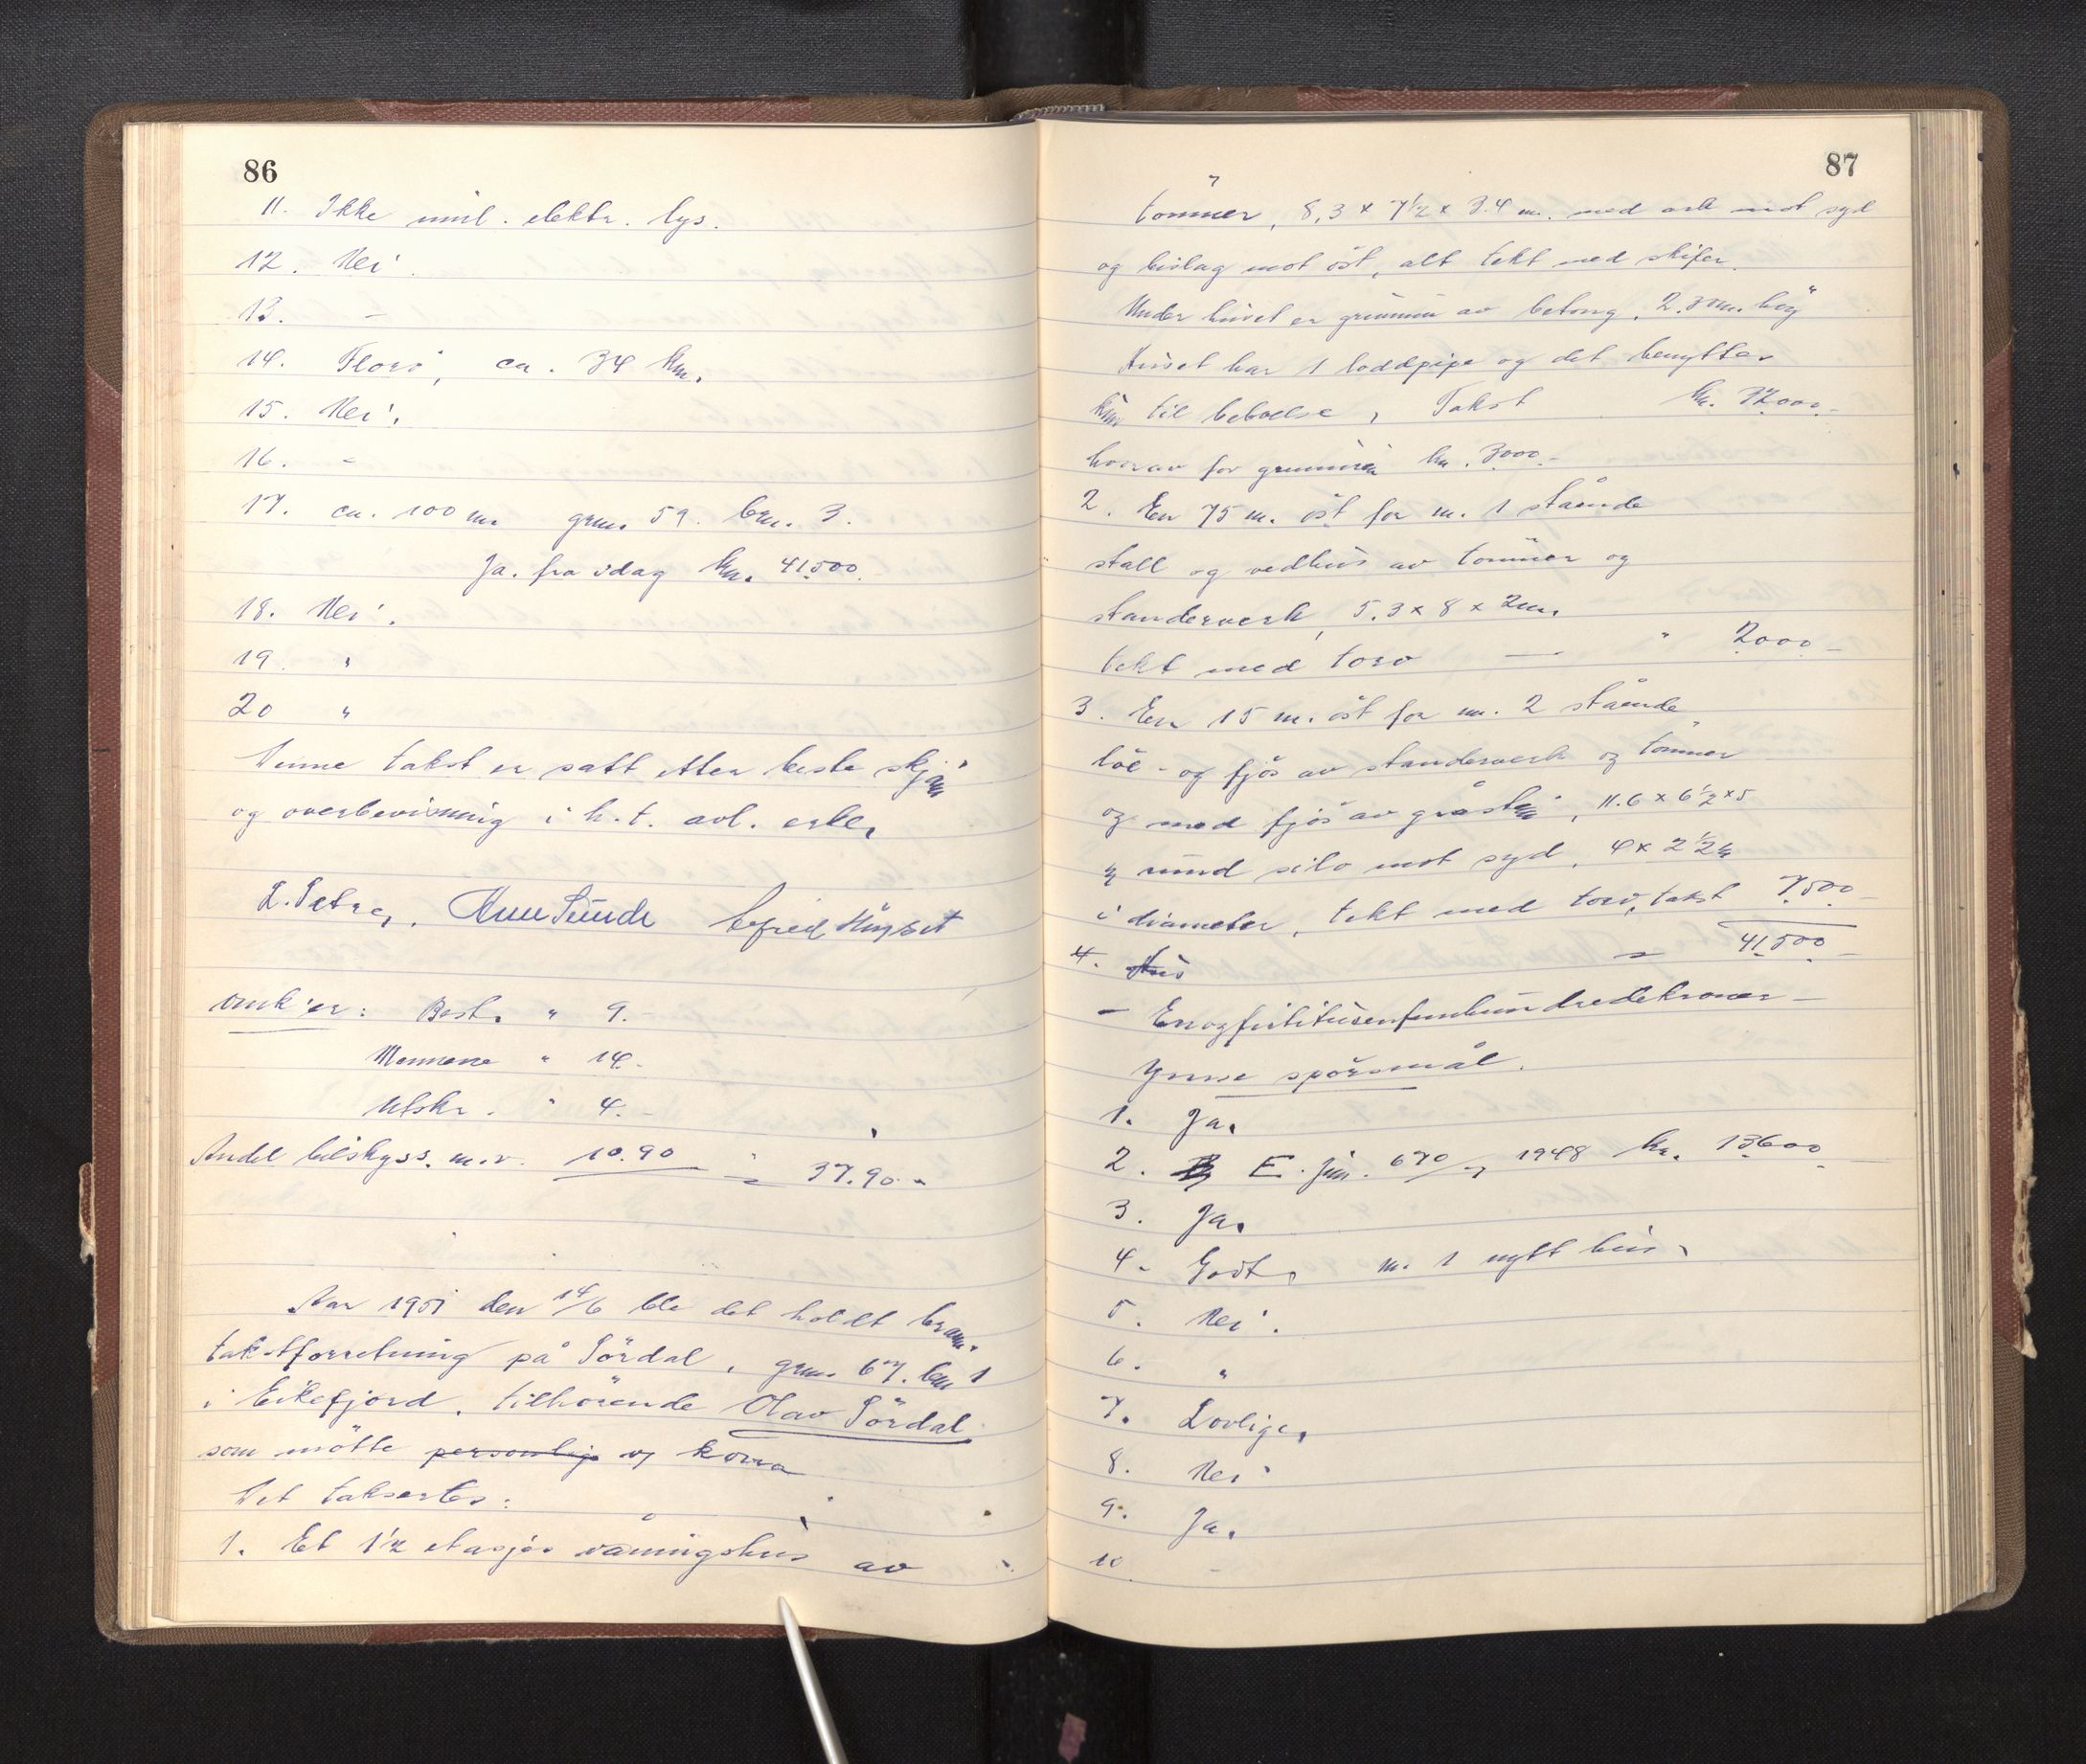 86
11. Ikke innl. elektr. lys.
12. Nei.
13. -
14. Florø, ca. 34 km.
15. Nei.
16. -
17. ca. 100 m gnr. 59. bnr. 3.
Ja. fra idag kr. 41500.
18. Nei.
19. "
20 "
Denne takst er satt etter beste skjøn
og overbevisning i h.t. avl. erkl.
omk'er: Best. " 9.-
Mennene " 14.-
Utskr. " 4.-
Andel bilskyss. m.v. 10.90 " 37.90.-
Aar 1951 den 14/6 ble det holdt brann-
takstforretning på Sørdal, gnr. 67. bnr 1
i Eikefjord, tilhørende Olav Sørdal
som møtte personlig og kona
Det takseres:
1. Et 1½ etasjes våningshus av
87
tømmer, 8,3 x 7½ x 3.4 m. med ark mot syd
og bislag mot øst, alt tekt med skifer.
Under huset er grunnmur av betong, høg
Huset har 1 loddpipe og det benyttes
kun til beboelse, Takst kr. 32000.-
hvorav for grunnmur kr. 3000.-
2. En 75 m. øst for nr. 1 stående
stall og vedhus av tømmer og
standerverk, 5.3 x 8 x 2m.
tekt med torv — " 2000.-
3. En 15 m. øst for nr. 2 stående
løe- og fjøs av standerverk og tømmer
og med fjøs av gråstein, 11.6 x 6½ x 5
og rund silo mot syd, 4 x 2½ m
i diameter, tekt med torv, takst 7500.-
4. Hus = 41500.-
- Enogførtitusenfemhundredekroner -
Ymse spørsmål.
1. Ja.
2. E. jnr. 670/-, 1948 kr. 13600.-
3. Ja.
4. Godt, nr. 1 nytt hus.
5. Nei.
6. "
7. Lovlige.
8. Nei
9. Ja.
10. -